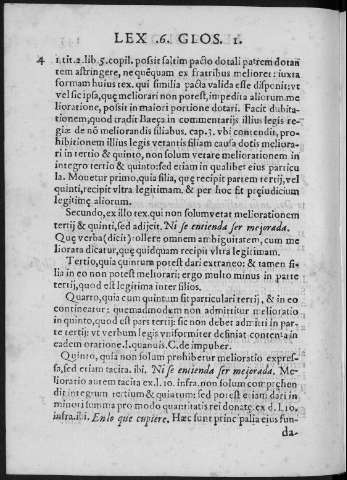 LEX .6. GLOS. 1.
4 1.tit.2.lib.5.copil. possit saltim pacto dotali patrem dotan
tem astringere, ne quēquam ex fratribus melioret: iuxta
formam huius tex. qui similia pacta valida esse disponit: vt
vel sic ipsa, quę meliorari non potest, impedita aliorum me
lioratione, possit in maiori portione dotari. Facit dubita-
tionem, quod tradit Baeça in commentarijs illius legis re-
giæ de nō meliorandis filiabus. cap. 1. vbi contendit, pro-
hibitionem illius legis vetantis filiam causa dotis meliora-
ri in tertio & quinto, non solum vetare meliorationem in
integro tertio & quinto: sed etiam in qualibet eius particu
la. Mouetur primo, quia filia, quę recipit partem tertij, vel
quinti, recipit vltra legitimam. & per hoc fit pręiudicium
legitimę aliorum.
Secundo, ex illo tex. qui non solum vetat meliorationem
tertij & quinti, sed adijcit. Ni se entienda ser mejorada.
Quę verba (dicit) tollere omnem ambiguitatem, cum me
liorata dicatur, quę quidquam recipit vltra legitimam.
Tertio, quia quintum potest dari extraneo; & tamen fi-
lia in eo non potest meliorari; ergo multo minus in parte
tertij, quod est legitima inter filios.
Quarto, quia cum quintum sit particulari tertij, & in eo
contineatur: quemadmodum non admittitur melioratio
in quinto, quod est pars tertij: sic non debet admitti in par-
te tertij: vt verbum legis vniformiter definiat contenta in
eadem oratione. l. quamuis. C. de impuber.
Quinto, quia non solum prohibetur melioratio expres-
sa, sed etiam tacita. ibi. Ni se entienda ser mejorada. Me-
lioratio autem tacita ex. l. 10. infra. non solum comprehen
dit integrum tertium & quintum: sed potest etiam dari in
minori summa pro modo quantitatis rei donatę. ex d. l. 10.
infra. ibi. En lo que cupiere. Hæc sunt princi palia eius fun-
da-